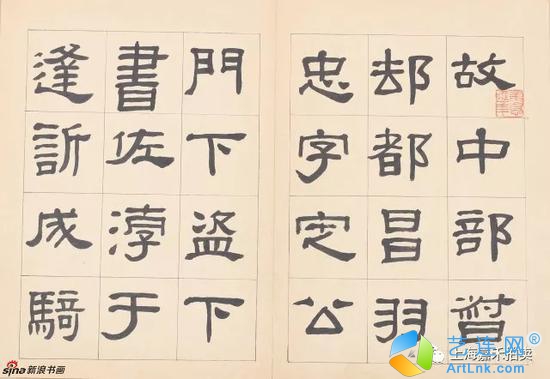 故中部督
邮都昌羽
忠字定公
門下盜下
書佐淳于
逢訢成騎
sina 新浪书画
上海嘉禾拍卖
艺连网
ArtLnk.com